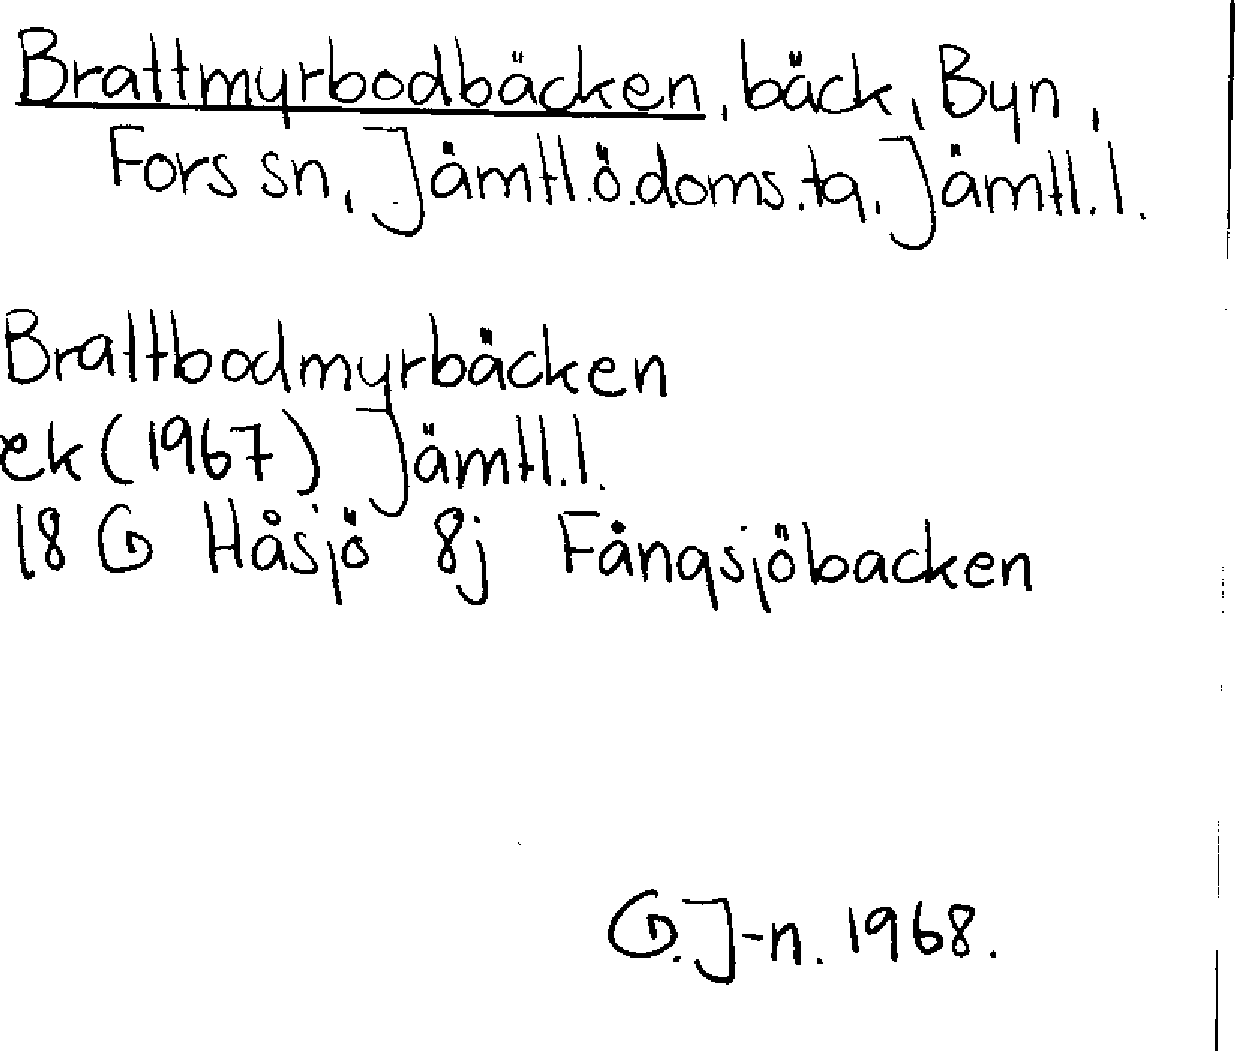 Brattmyrbodbäcken, bäck, Byn,
Fors sn, Jämtl.ö.doms.ta, Jämtl.l.
Brattbodmyrbäcken
ek (1967) Jämtl.l.
18 G Håsjö 8j Fångsjöbacken
G.J-n. 1968.